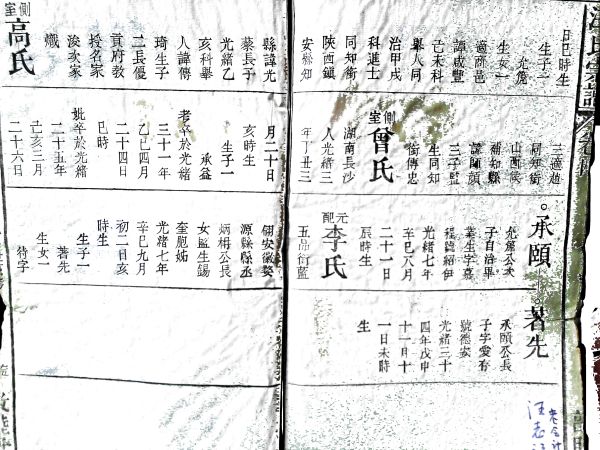 日巳時生
生子一
允篪
生女一
適薛邑
譚咸豐
己未科
舉人同
治甲戌
科進士
同知銜
陝西鎮
安縣知
縣諱光
蔡長子
光緒乙
亥科舉
人諱傳
琦生子
二長優
貢府教
授名家
浚次家
熾
側室
高氏
三適趙
同知銜
山西候
補知縣
諱師頗
三子監
生同知
銜傳忠
側室
曾氏
湖南長沙
人光緒三
年丁丑三
月二十日
亥時生
生子一
承益
老卒於光緒
三十一年
乙巳四月
二十四日
巳時
妣卒於光緒
二十五年
己亥三月
二十六日
承頤
允篪公次
子自治界
業生字嘉
福號紹伊
光緒七年
辛巳八月
二十一日
辰時生
元配
李氏
五品銜藍
翎安徽婺
源縣縣丞
炳枏公長
女監生錫
奎胞姊
光緒七年
辛巳九月
初二日亥
時生
生子一
著先
生女一
待字
著先
承頤公長
子字雯青
號德安
光緒三十
四年戊申
十一月十
一日未時
生